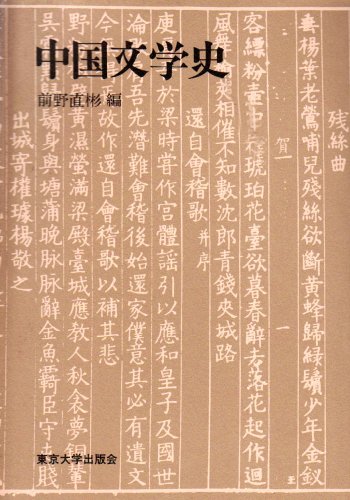 中国文学史
前野直彬 編
残絲曲
垂楊葉老鶯哺兒残絲欲斷黄蜂歸緑鬢少年金釵
賀一 一 王
客縹粉壷中 琥珀花臺欲暮春辭去落花起作迴
風舞榆 相催不知數沈郎青錢夾城路
還自會稽歌 并序
庾 於梁時嘗作宮體謡引以應和皇子及國世
吾先潛難會稽後始還家僕意其必有遺文
今無 故作還自會稽歌以補其悲
野 黄濕螢滿梁殿臺城應教人秋衾夢銅輦
吳 鬢身與塘蒲晚脉脉辭金魚羈臣守 賤
出城寄權璩楊敬之
東京大学出版会